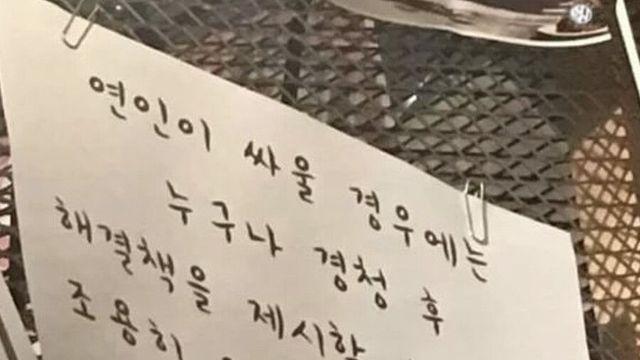 연인이 싸울 경우에는
누구나 경청 후
해결책을 제시할
조용히